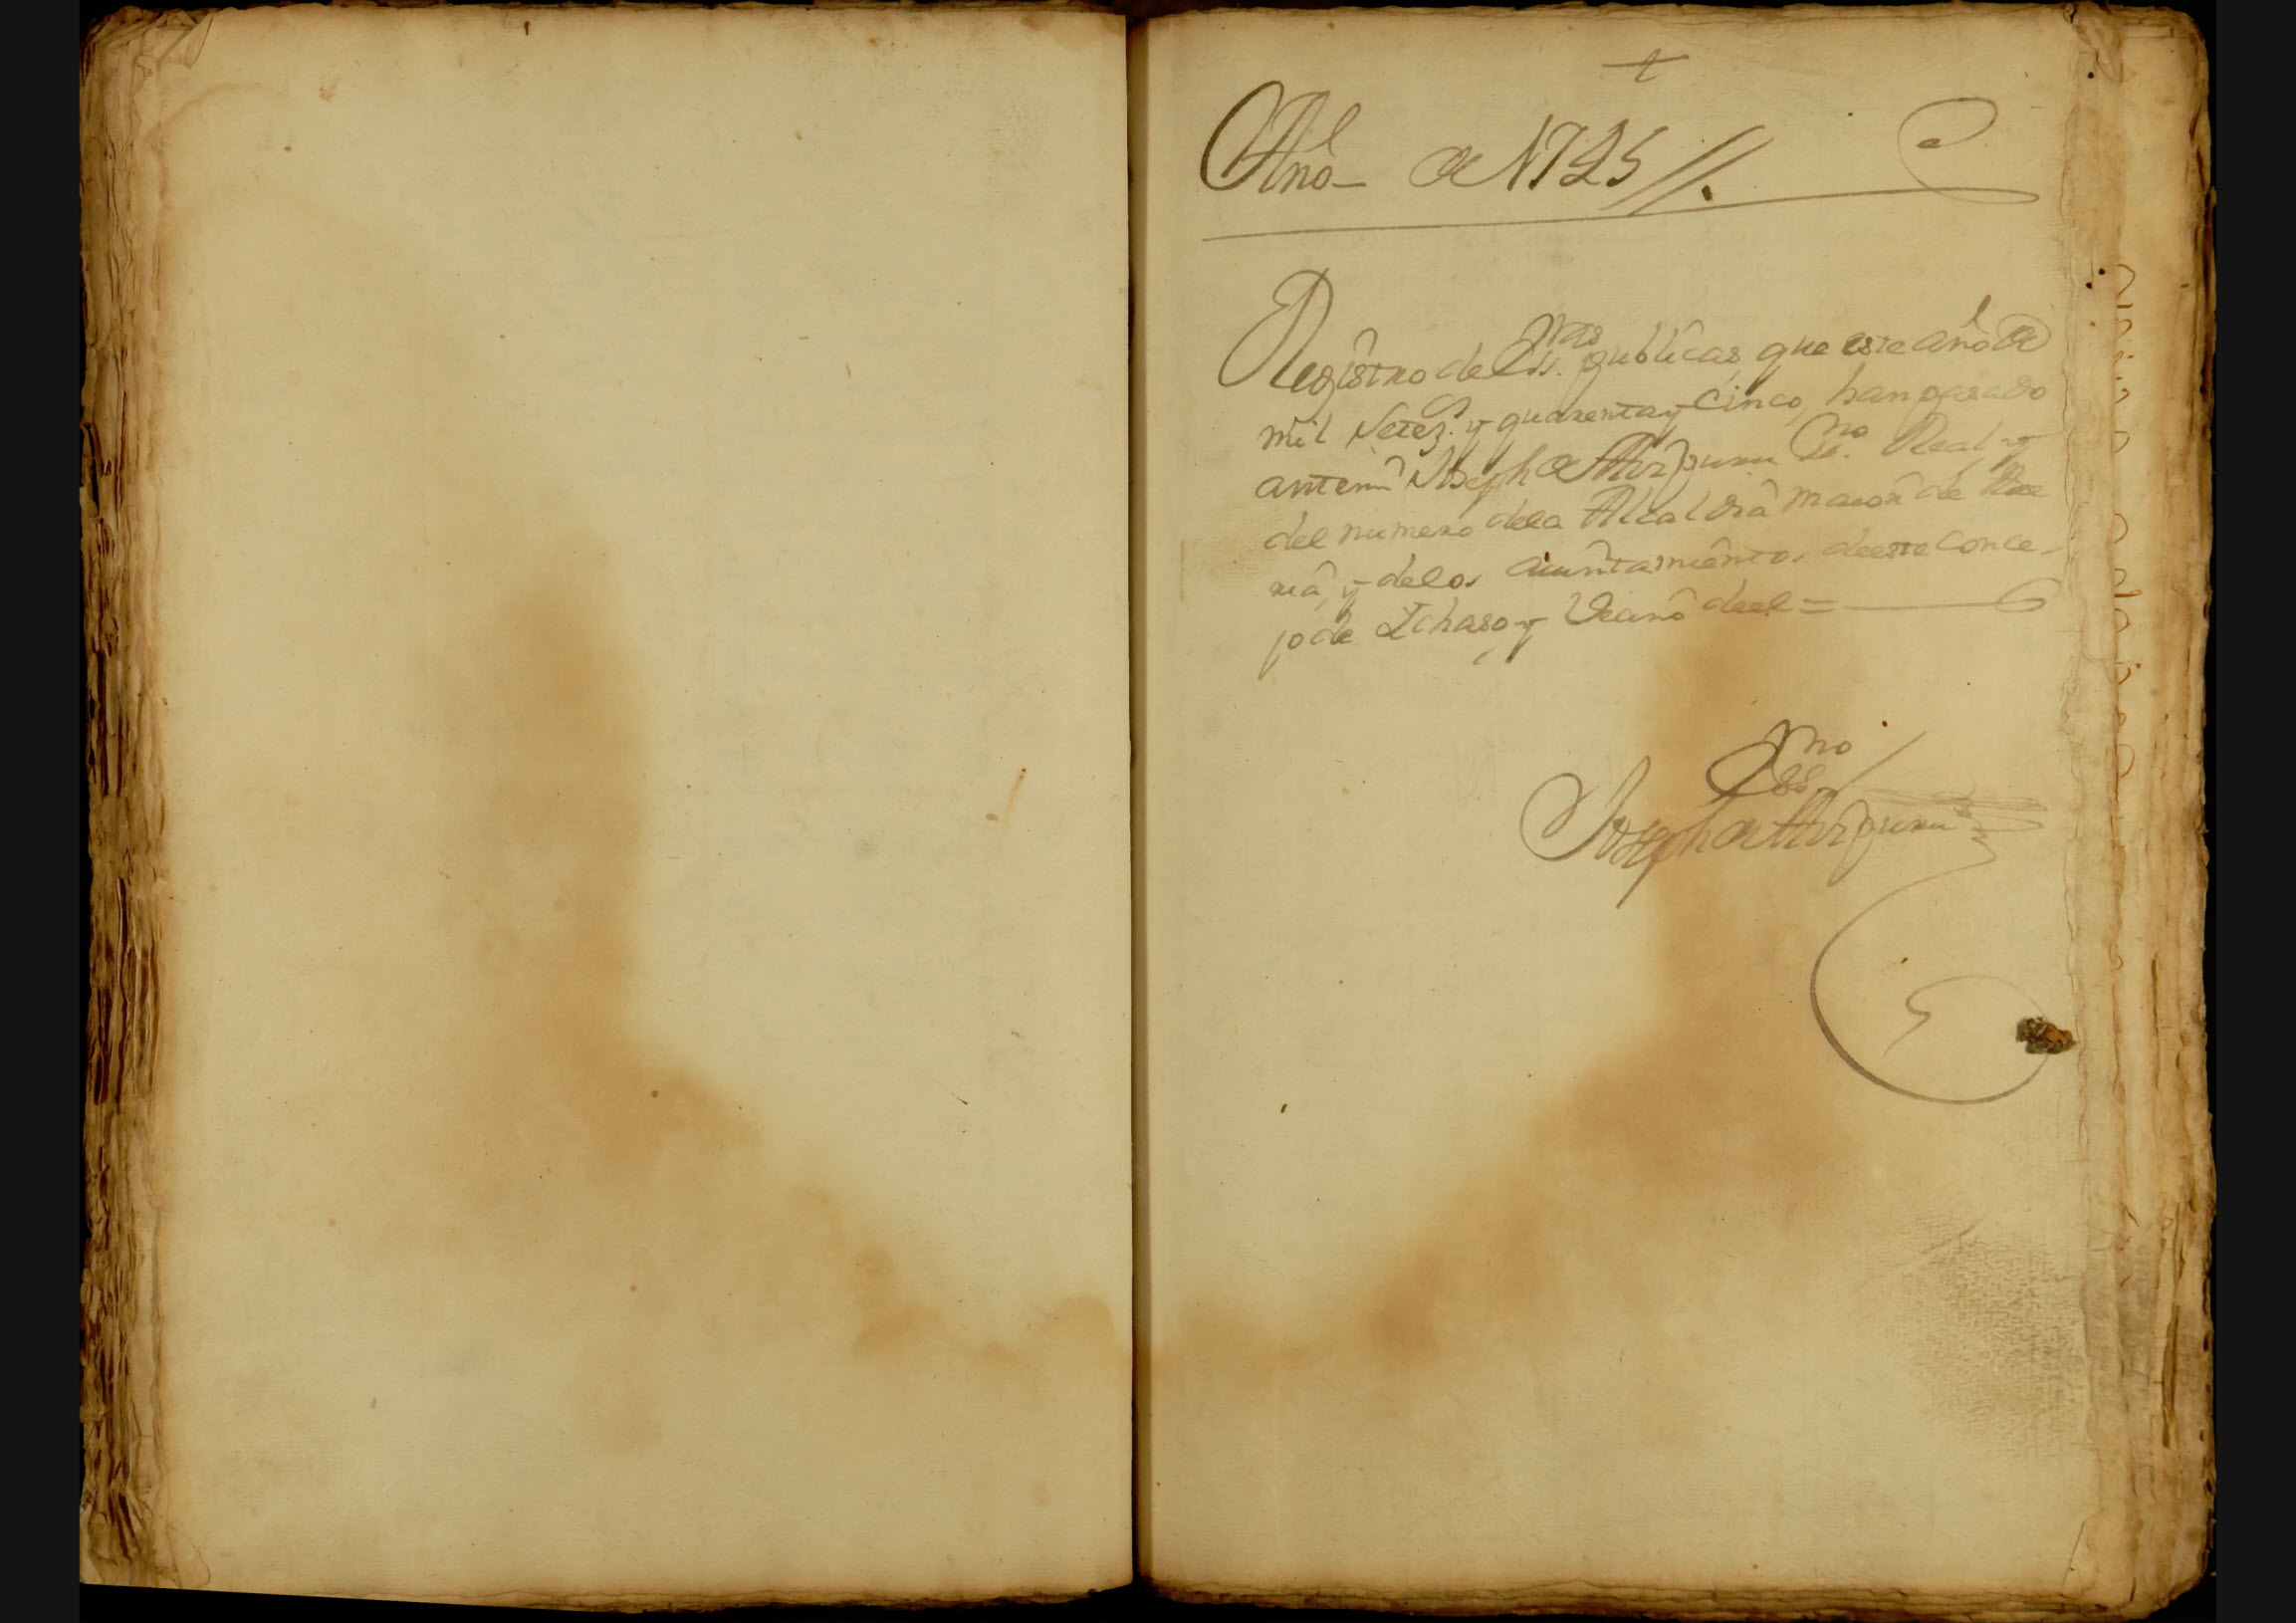 +
Año de 1745 //.
Registro de Ess.ras publicas, que este año de
mil Setez.s y quarenta y Cinco, han pasado
antemi Joseph de Aizpuru Ess.no Real, y
del numero dela Alcaldia maior de Are
ria, y delos aiuntamientos de este Conce-
jo de Ichaso, y Vecino de el =
Ess.no
Joseph de Aizpuru